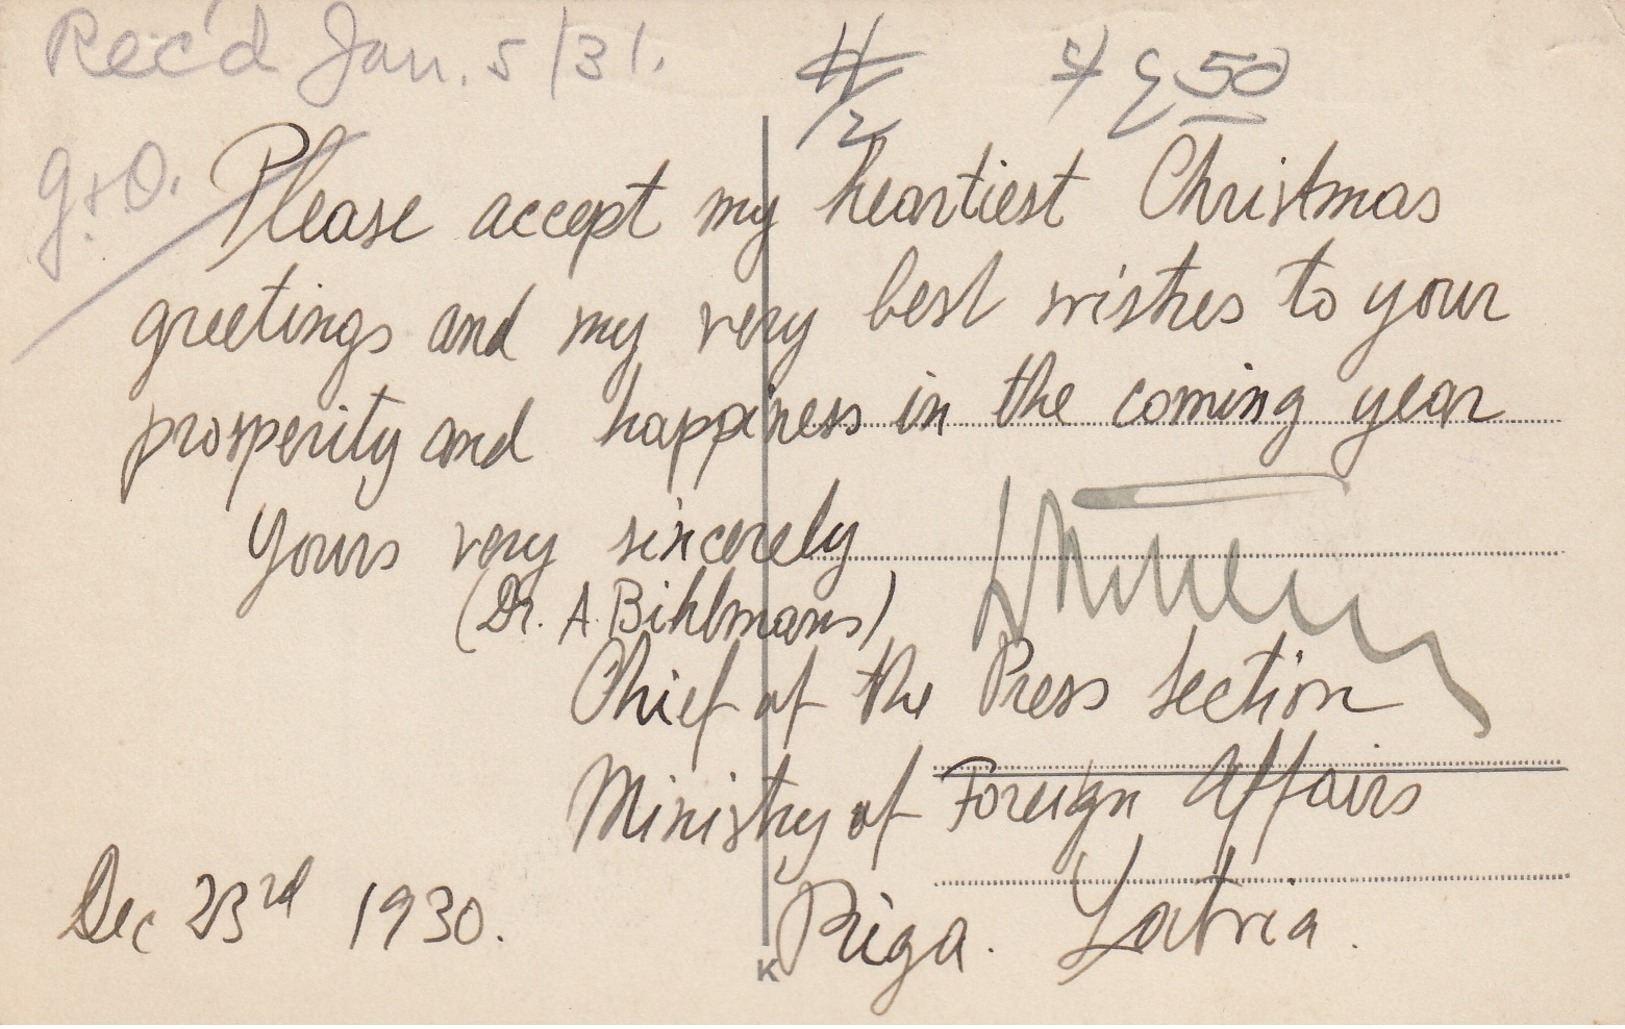 Rec'd Jan. 5/31.
50
Please accept my heartiest Christmas
greetings and my very best wishes to your
prosperity and happiness in the coming year
Yours very sincerely
(Dr. A. Bihlmans)
Chief of the Press Section
Ministry of Foreign Affairs
Dec 23rd 1930. Riga. Latvia.
K